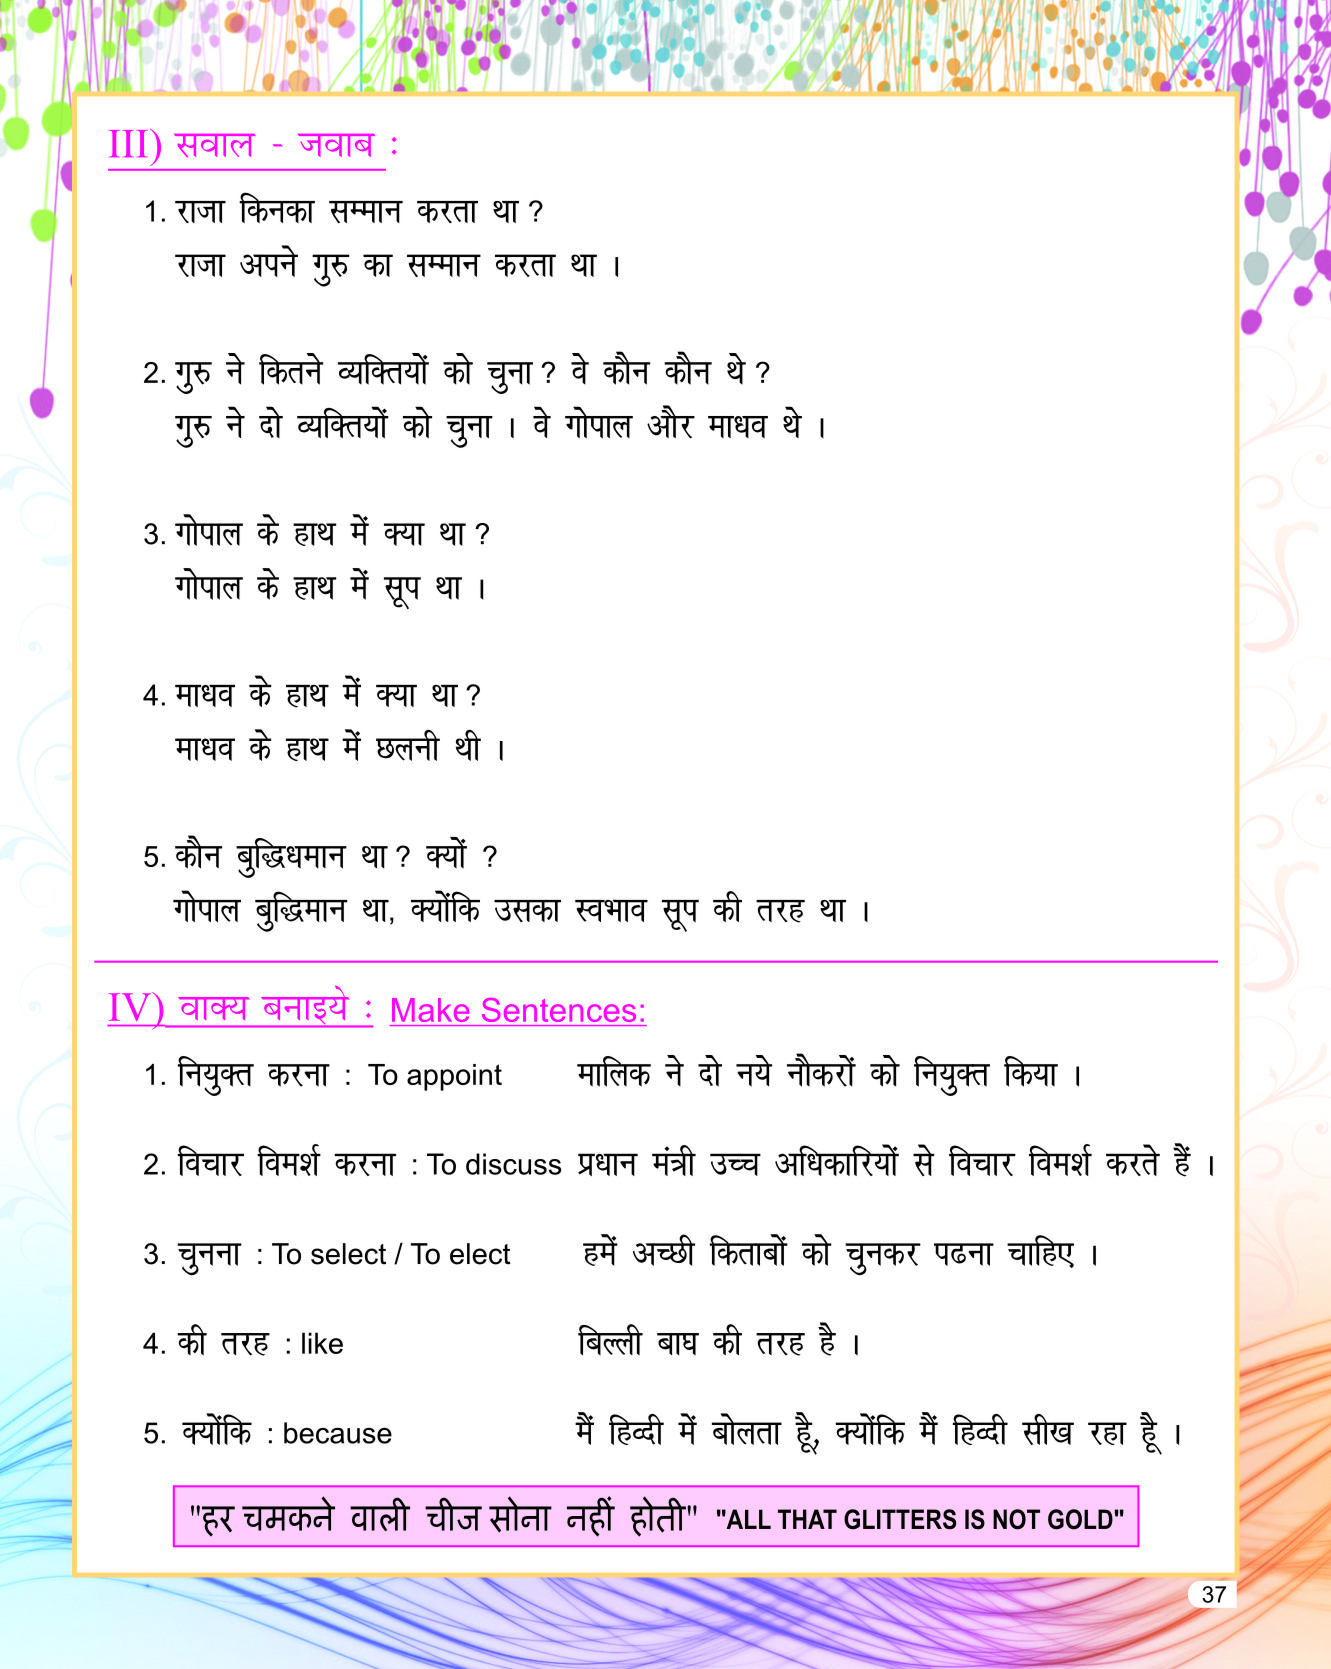 III) सवाल - जवाब :
1. राजा किनका सम्मान करता था ?
राजा अपने गुरु का सम्मान करता था ।
2. गुरु ने कितने व्यक्तियों को चुना ? वे कौन कौन थे ?
गुरु ने दो व्यक्तियों को चुना । वे गोपाल और माधव थे ।
3. गोपाल के हाथ में क्या था ?
गोपाल के हाथ में सूप था ।
4. माधव के हाथ में क्या था ?
माधव के हाथ में छलनी थी ।
5. कौन बुद्धिधमान था ? क्यों ?
गोपाल बुद्धिमान था, क्योंकि उसका स्वभाव सूप की तरह था ।
IV) वाक्य बनाइये : Make Sentences:
1. नियुक्त करना : To appoint मालिक ने दो नये नौकरों को नियुक्त किया ।
2. विचार विमर्श करना : To discuss प्रधान मंत्री उच्च अधिकारियों से विचार विमर्श करते हैं ।
3. चुनना : To select / To elect हमें अच्छी किताबों को चुनकर पढना चाहिए ।
4. की तरह : like बिल्ली बाघ की तरह है ।
5. क्योंकि : because मैं हिव्दी में बोलता हूै, क्योंकि मैं हिव्दी सीख रहा हूै ।
"हर चमकने वाली चीज सोना नहीं होती" "ALL THAT GLITTERS IS NOT GOLD"
37